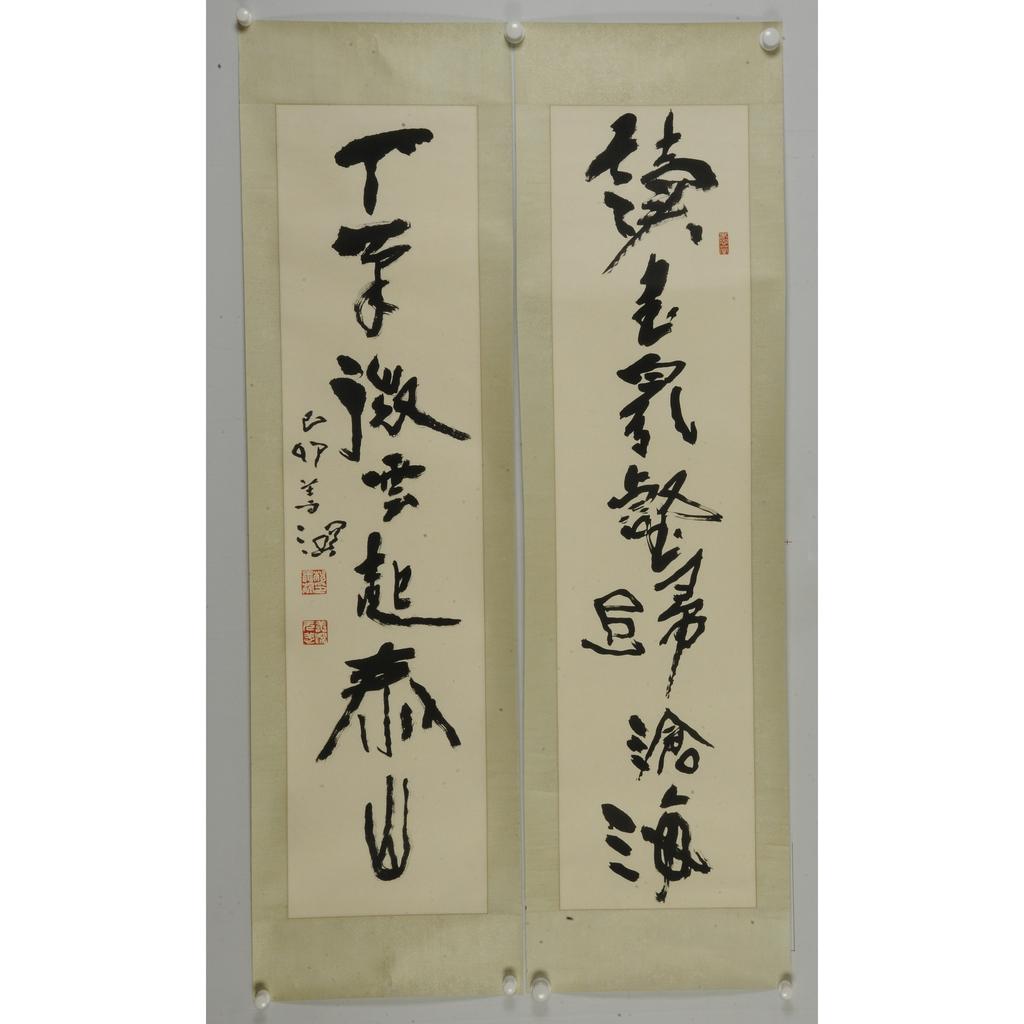 讀書衆壑歸滄海
下筆微雲起泰山
己卯善深